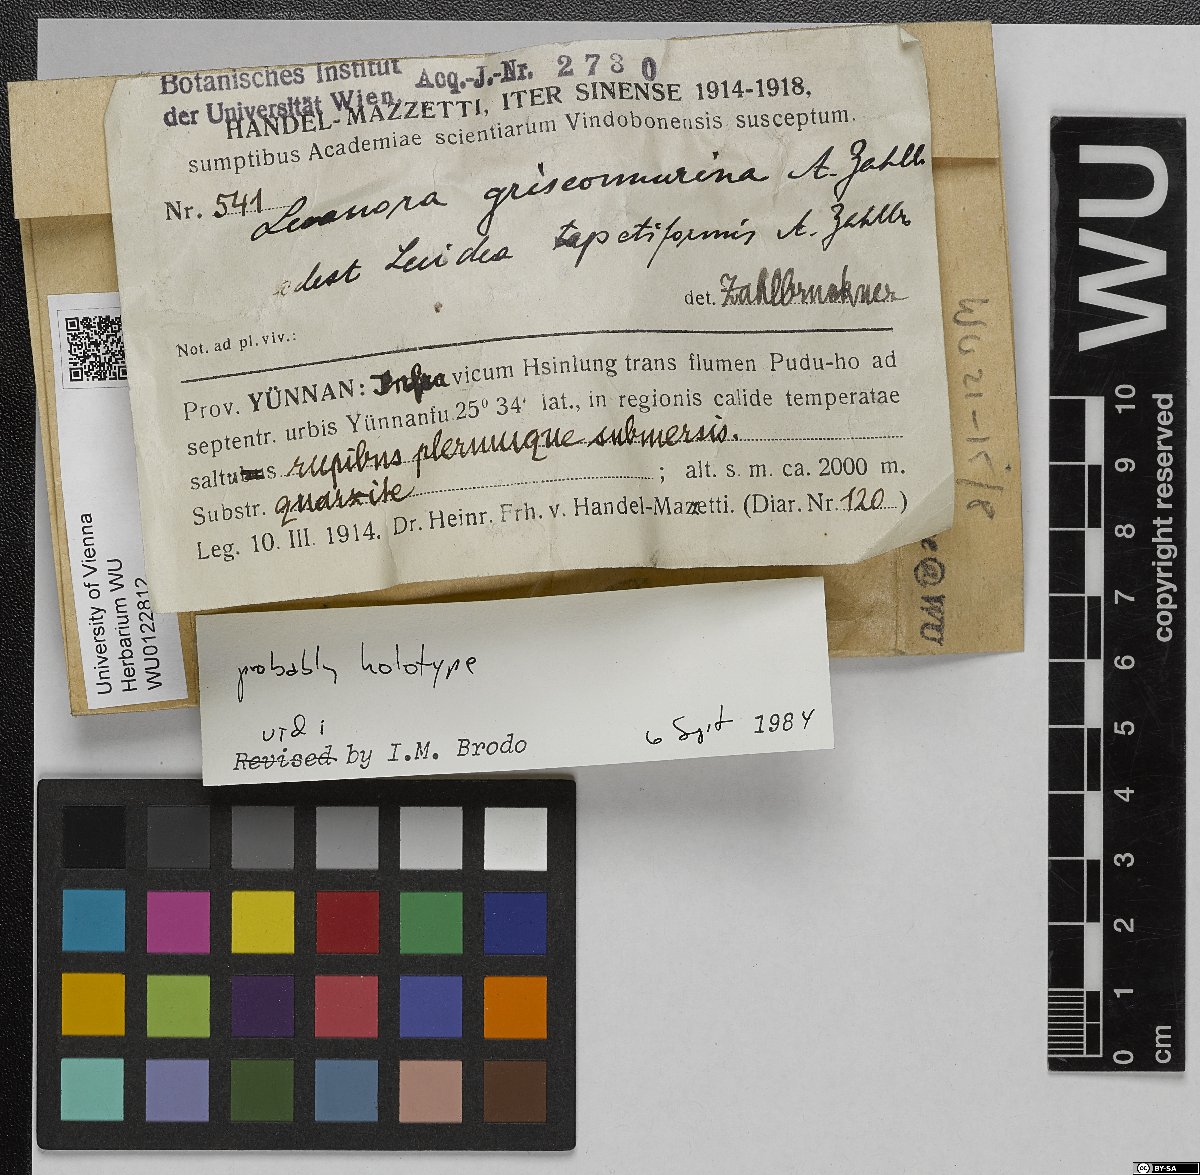 Botanisches Institut
der Universität Wien, Acq.-J.-Nr. 2730
HANDEL-MAZZETTI, ITER SINENSE 1914-1918,
sumptibus Academiae scientiarum Vindobonensis susceptum.
Nr. 541 Lecanora griseomurina A. Zahlb.
adest Lecidea tapetiformis A. Zahlbr
det. Zahlbruckner
Not. ad pl. viv.:
Prov. YÜNNAN: Infra vicum Hsinlung trans flumen Pudu-ho ad
septentr. urbis Yünnanfu 25° 34' lat., in regionis calide temperatae
saltubus rupibus plerumque submersis.
Substr. quarzite ; alt. s. m. ca. 2000 m.
Leg. 10. III. 1914. Dr. Heinr. Frh. v. Handel-Mazzetti. (Diar. Nr. 120 )
University of Vienna
Herbarium WU
WU0122812
probably holotype
vidi
Revised by I.M. Brodo
6 Sept 1984
WU
copyright reserved
0 1 2 3 4 5 6 7 8 9 10
cm
BY-SA